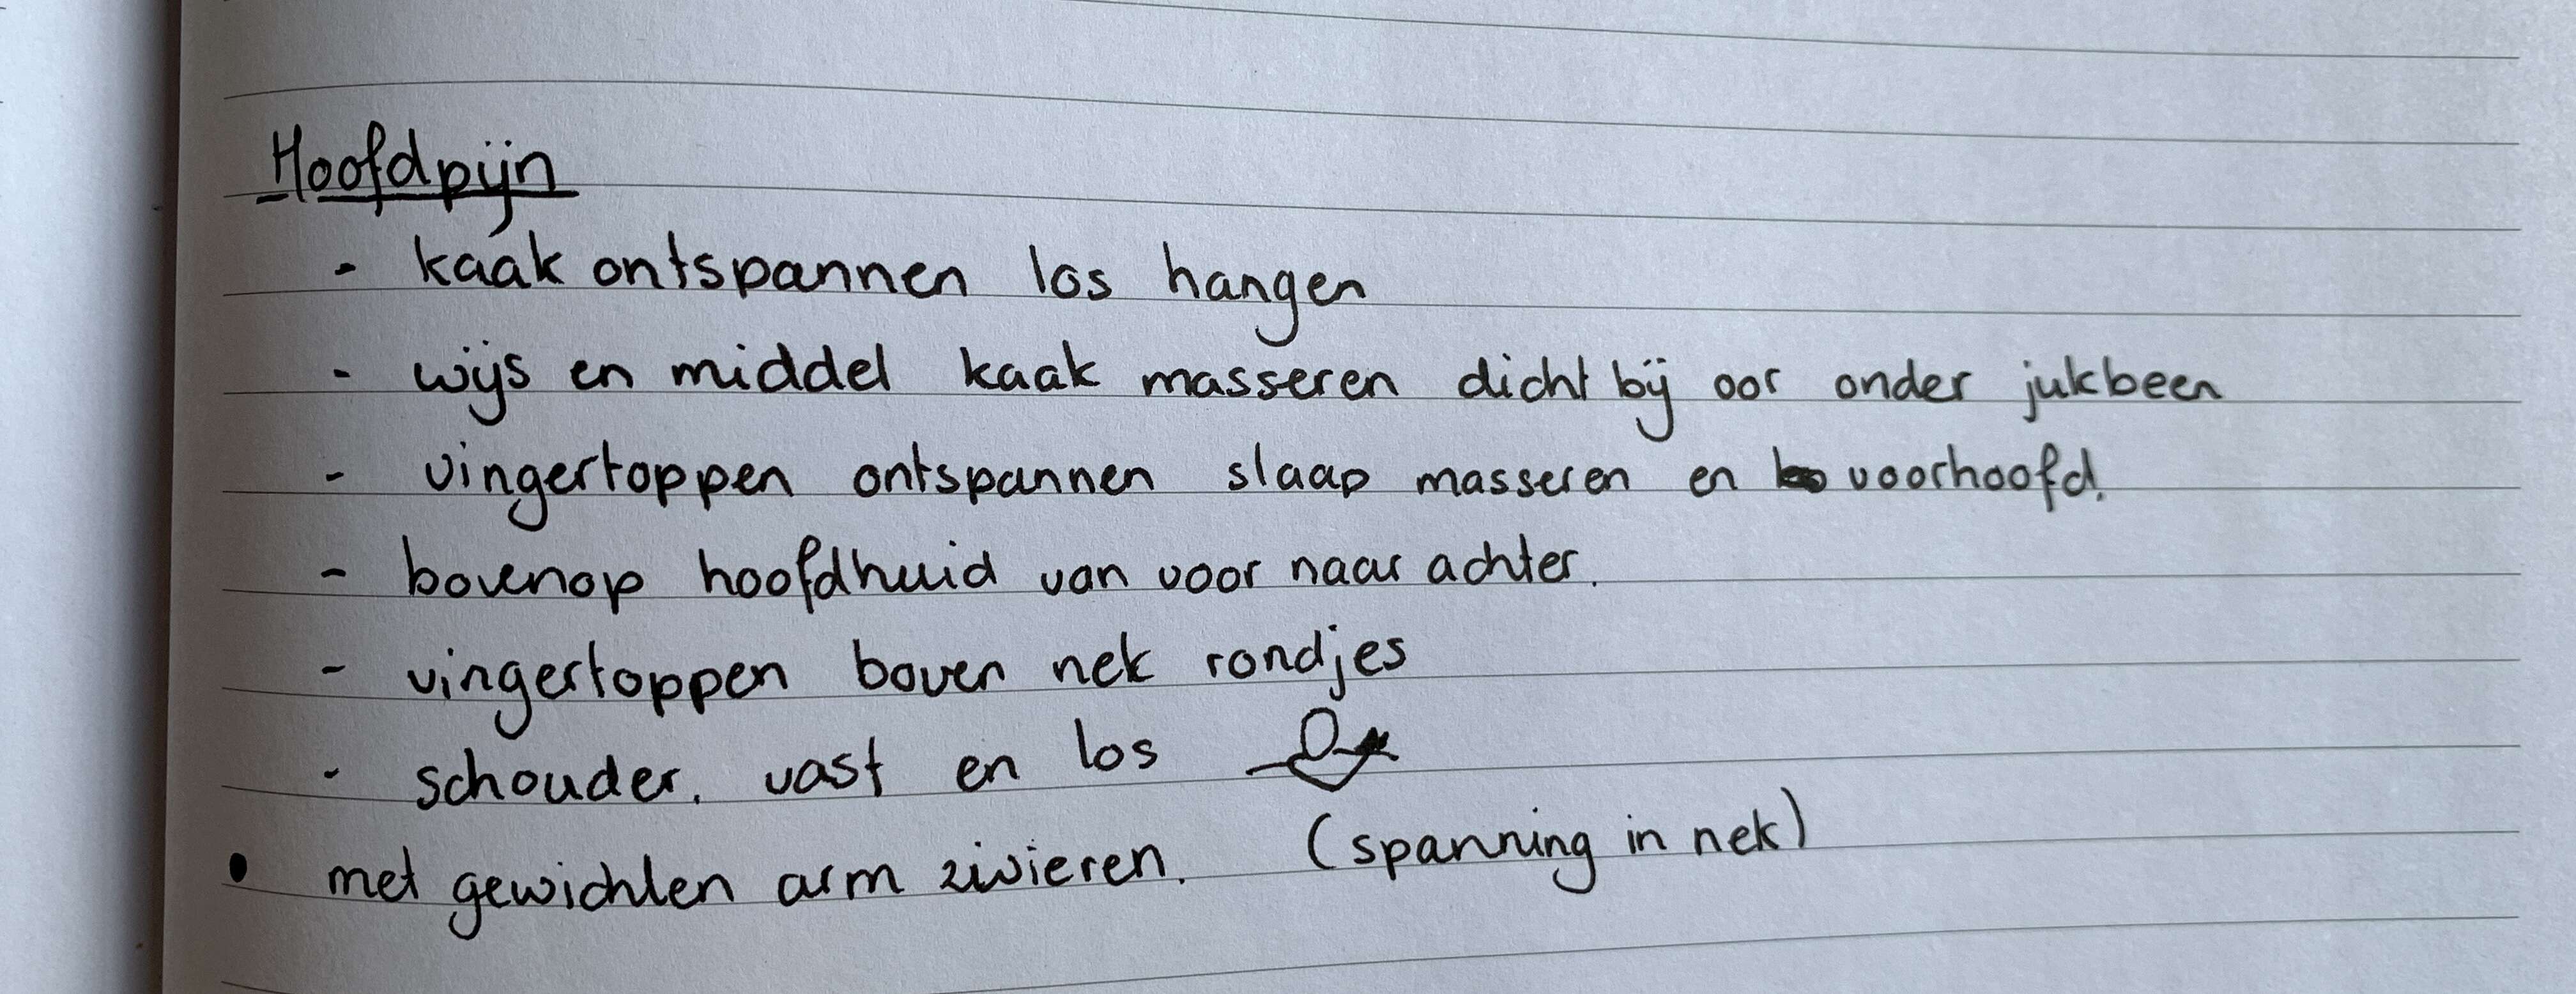 Hoofdpijn
- kaak ontspannen los hangen
- wijs en middel kaak masseren dicht bij oor onder jukbeen
- vingertoppen ontspannen slaap masseren en voorhoofd.
- bovenop hoofdhuid van voor naar achter.
- vingertoppen boven nek rondjes
- schouder. vast en los
(spanning in nek)
• met gewichten arm zwieren.